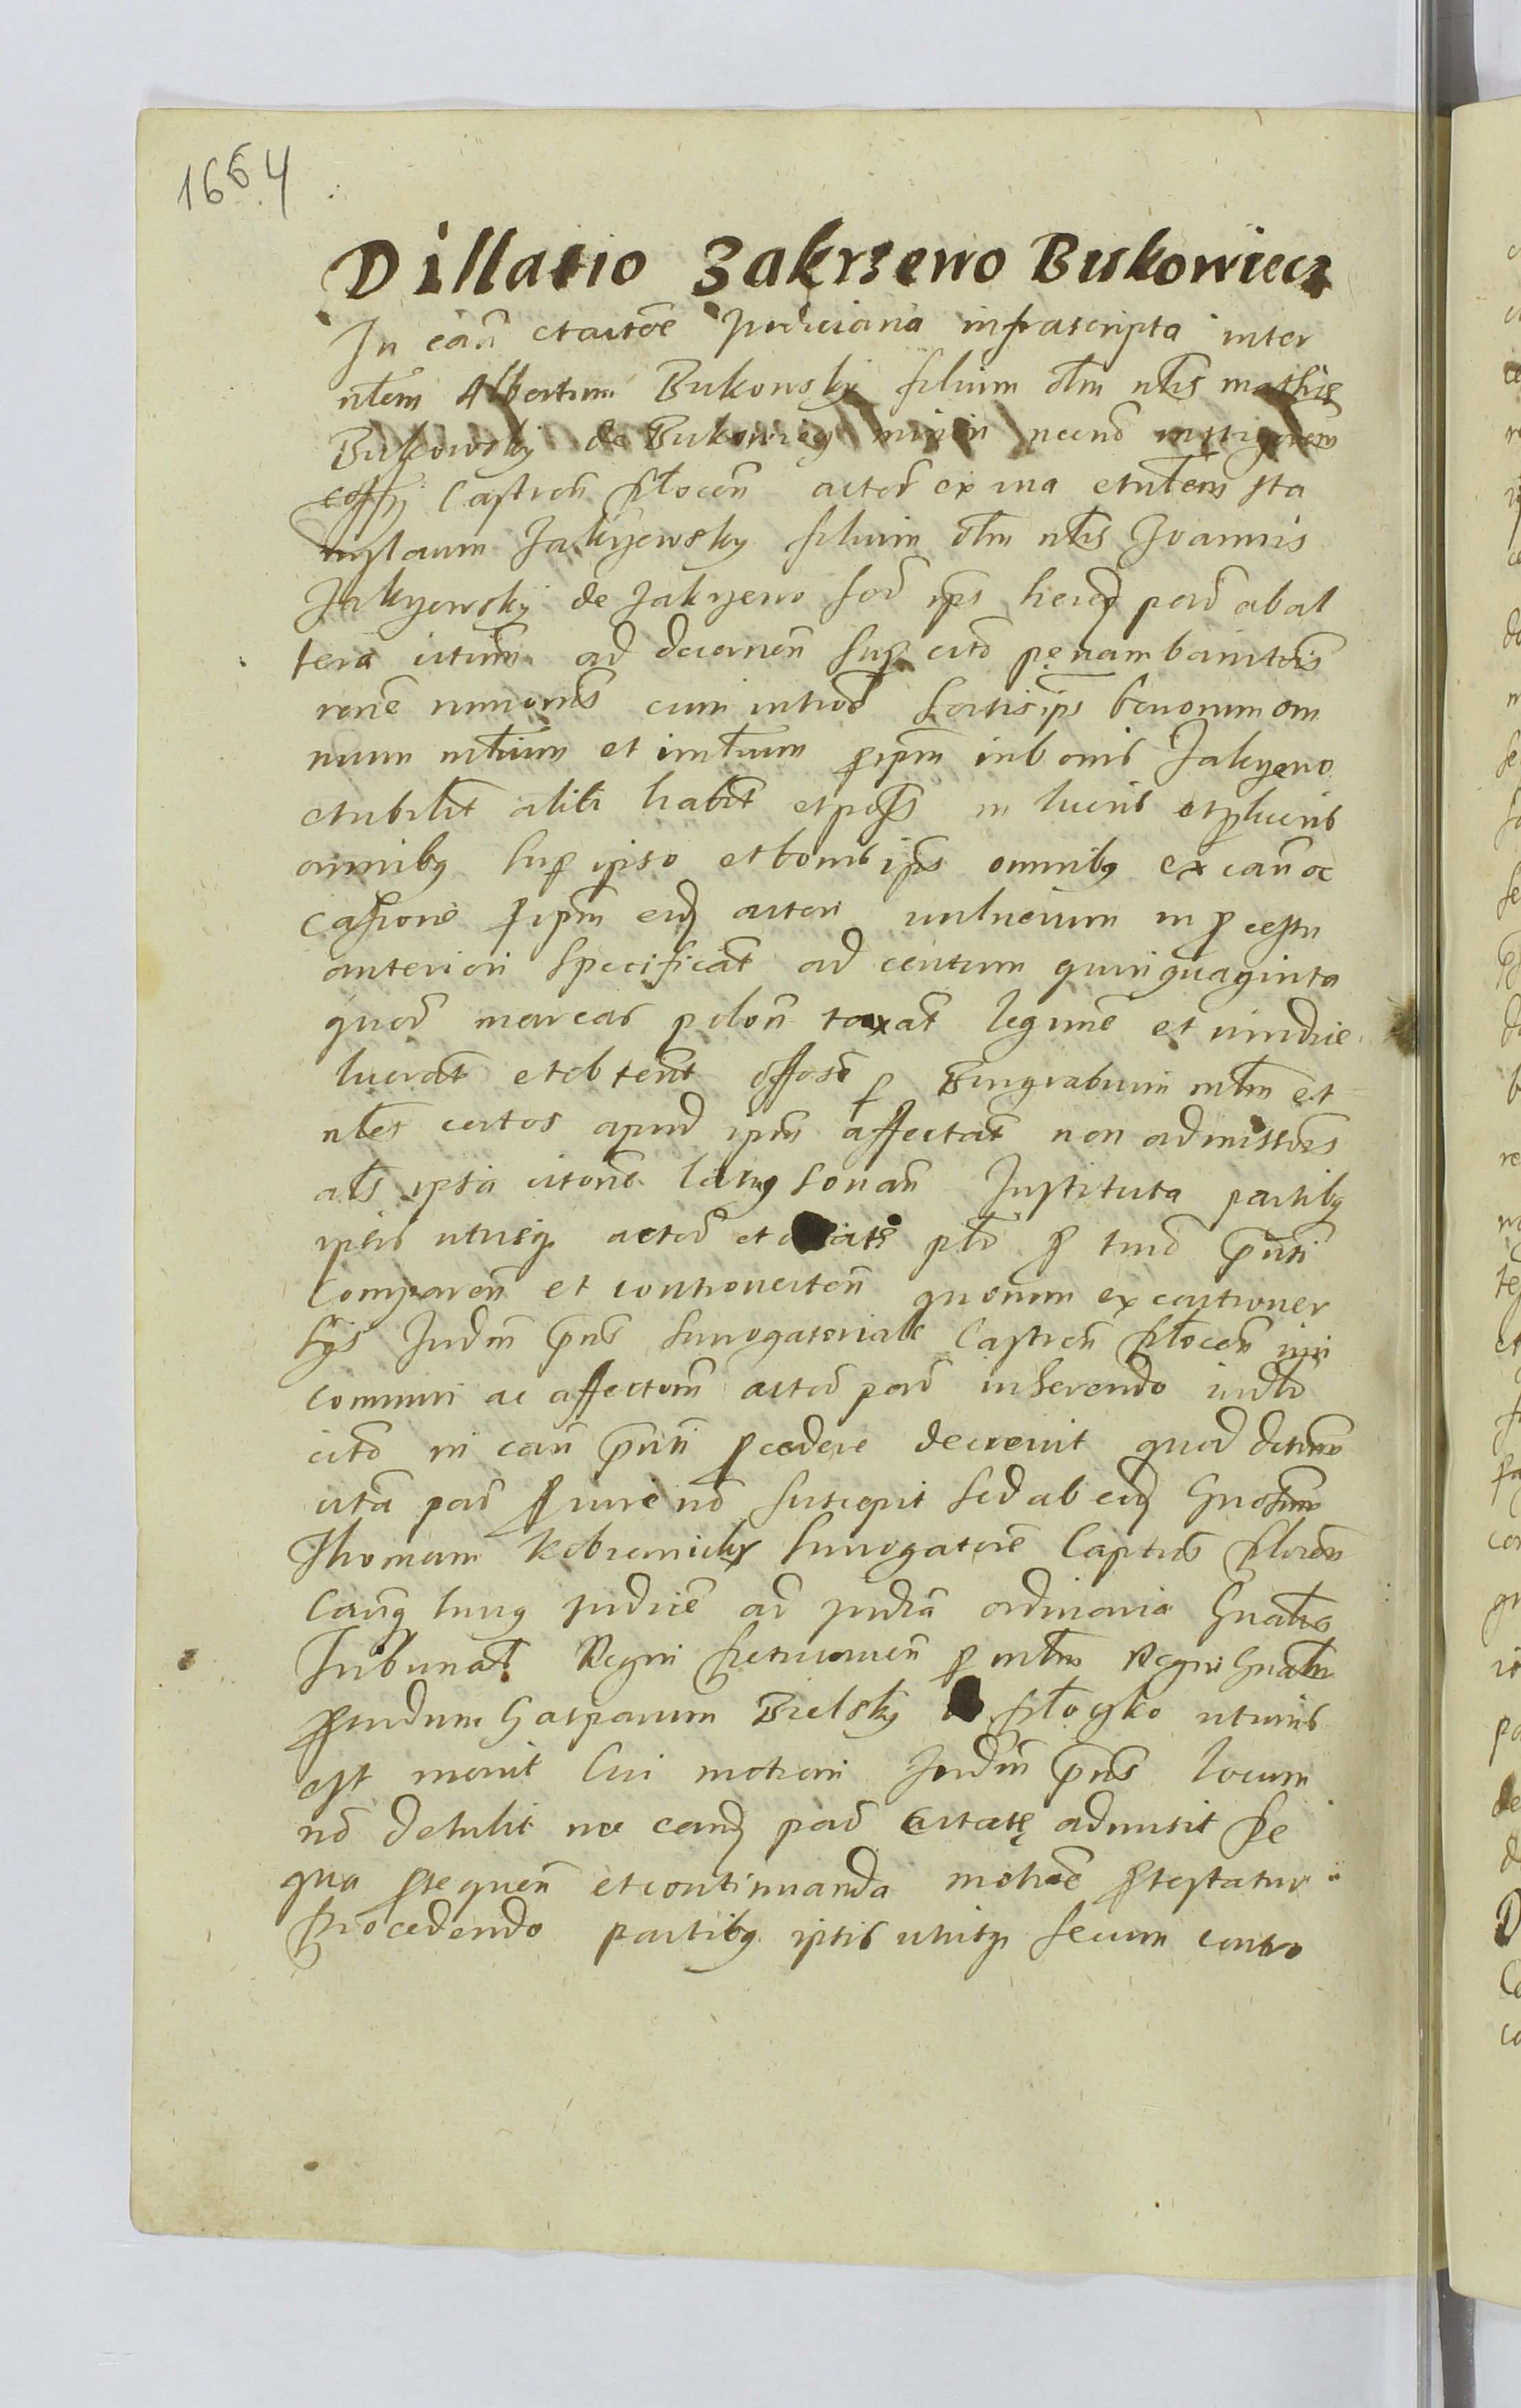 1664
Dillatio Zakrzewo Bukowiecz
In cau͞ et actōe Judiciaria infrascripta inter
nłem Albertum Bukowsky filium ołm nłis mathię
Bukowsky de Bukowiecz necnō instigatorem
officÿ Castreñ płoceñ actor̄ ex una et nłem sta
nislaum Zakrzewsky filium ołm nłis Joannis
Zakrzewsky de Zakrzewo ips hered par̄ ab al
tera citum ad decernen̄ sup̱ citō pęnam banitōis
cum introd̄ sortis ips bonorum om
nium młium et imłium p̱ ipm̄ in bonis Zakrzewo
et ubilt alibi habit̄ et poss̄ in lucris et p̱lucris
omnibꝫ sup̱ ipso et bonis ips omnibꝫ ex cau͞ oc
casione p̱ ipm̄ eid actori vulnerum in p̱cessu
anteriori specificat̄ ad centum quinquaginta
quar̄ marcas polon̄ taxat̄ legitimē et iuridice
lucrat̄ et obtent̄ p̱ Burgrabium młm et
nłes certos apud ipm̄ affectat̄ non admissōis
als ipsa citōnē latius sonan̄ Instituta partibꝫ
ipsis utrisqꝫ actor̄ et citatę p̱ tmō p̄nti
Comparen̄ et controverten̄ quorum ex controver
sÿs Judm̄ p̄ns Surrogatoriale Castren̄ płocen̄ iuri
communi ac affectōni actor̄ par̄ inherendo
citō in cau͞ p̄nti p̱cedere decrevit quod decretum
cita par̄ p̱ iure nō suscepit sed ab eod Gnosum
Thomam Kobrzenicky Surrogatorē Castren̄ płocen̄
Cauqꝫ huius Judicē ad Judia ordinaria Gnałia
Tribunał Regni Petricovien̄ p̱ młm Regni Gnałem
p̱ Casparum Bielsky płocko
est movit Cui motioni Judm̄ p̄ns locum
nō detulit nec eand par̄ Citatę admisit De
qua p̱sequen̄ et continuanda motiōē p̱testatur
Procedendo partibꝫ ipsis utrisqꝫ secum contro